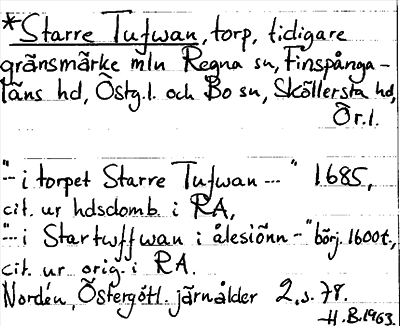 *Starre Tufwan, torp, tidigare
gränsmärke mln Regna sn, Finspånga-
läns hd, Östg.l. och Bo sn, Sköllersta hd,
Ör.l.
"-- i torpet Starre Tufwan ---" 1685,
cit. ur hdsdomb. i RA,
"-- i Startwffwan i ålesiönn --" börj. 1600t.,
cit. ur orig. i RA.
Nordén, Östergötl. järnålder 2, s. 78.
H.B. 1963.